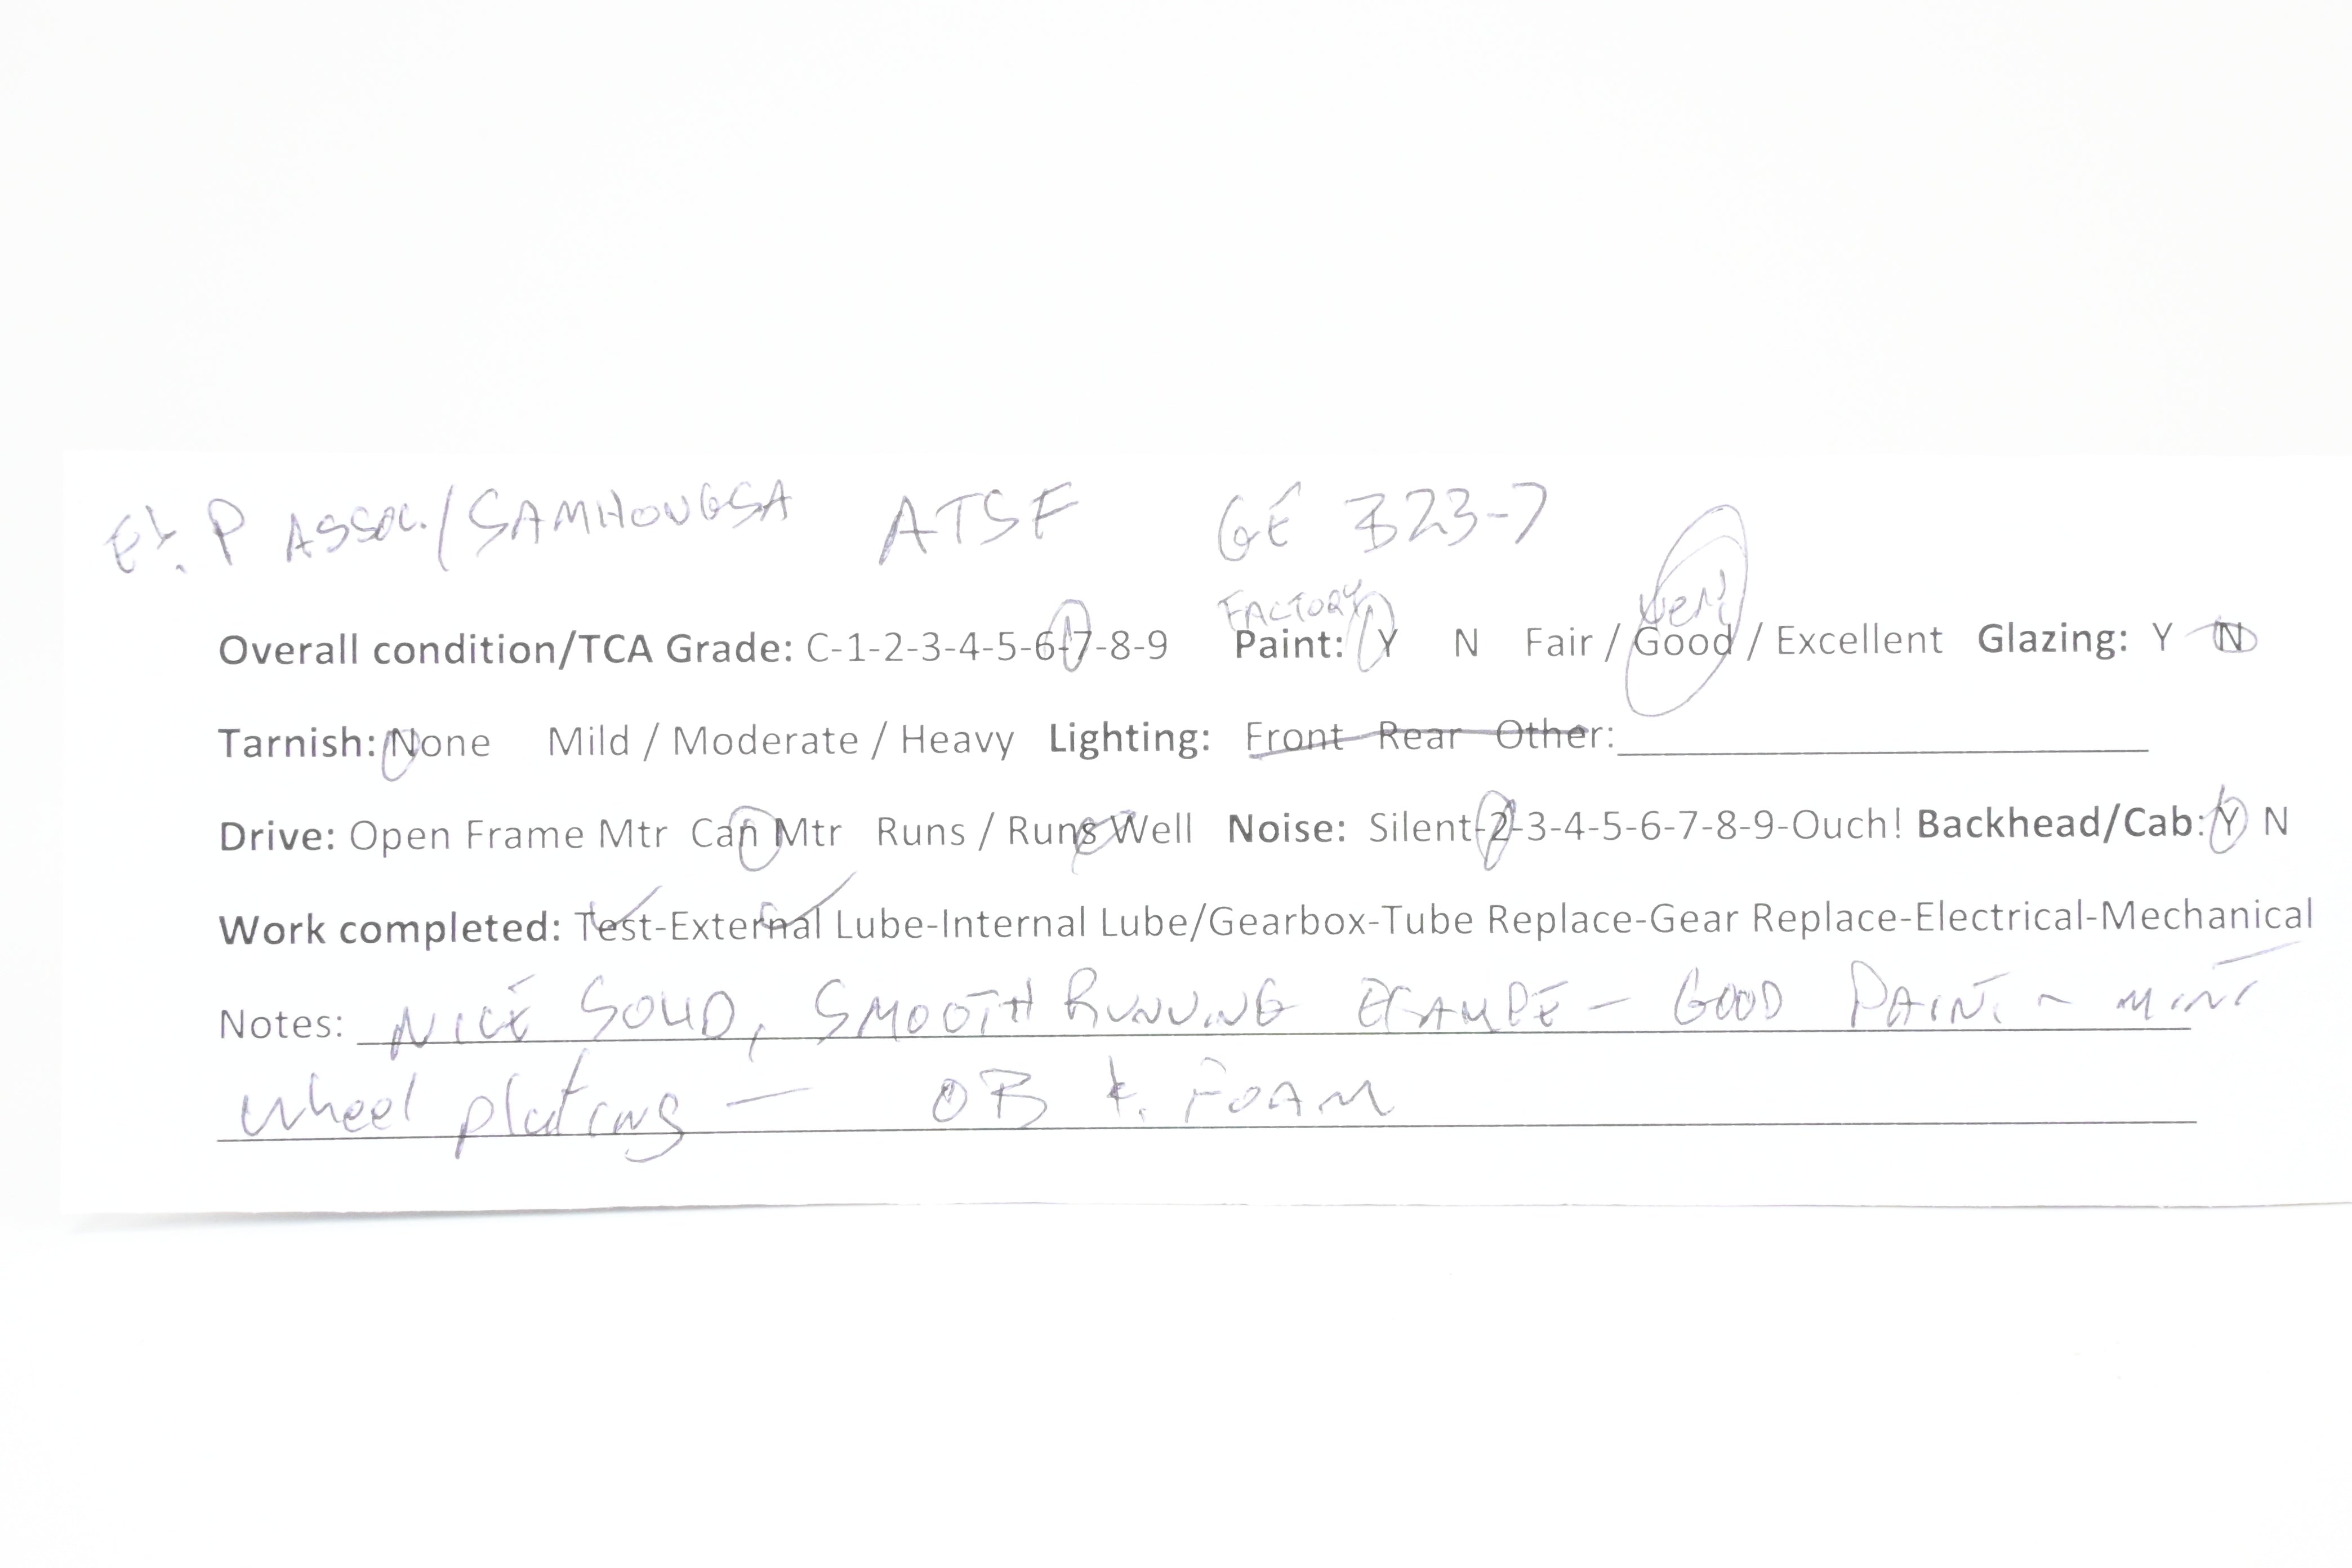 E & P ASSOC./SAMHONGSA ATSF GE B23-7
FACTORY very
Overall condition/TCA Grade: C-1-2-3-4-5-6-7-8-9 Paint: Y N Fair / Good / Excellent Glazing: Y N
Tarnish: None Mild / Moderate / Heavy Lighting: Front Rear Other:
Drive: Open Frame Mtr Can Mtr Runs / Runs Well Noise: Silent-2-3-4-5-6-7-8-9-Ouch! Backhead/Cab: Y N
Work completed: Test-External Lube-Internal Lube/Gearbox-Tube Replace-Gear Replace-Electrical-Mechanical
Notes: NICE SOLID, SMOOTH RUNNING EXAMPLE - GOOD PAINT - MINT
wheel plating - OB & FOAM